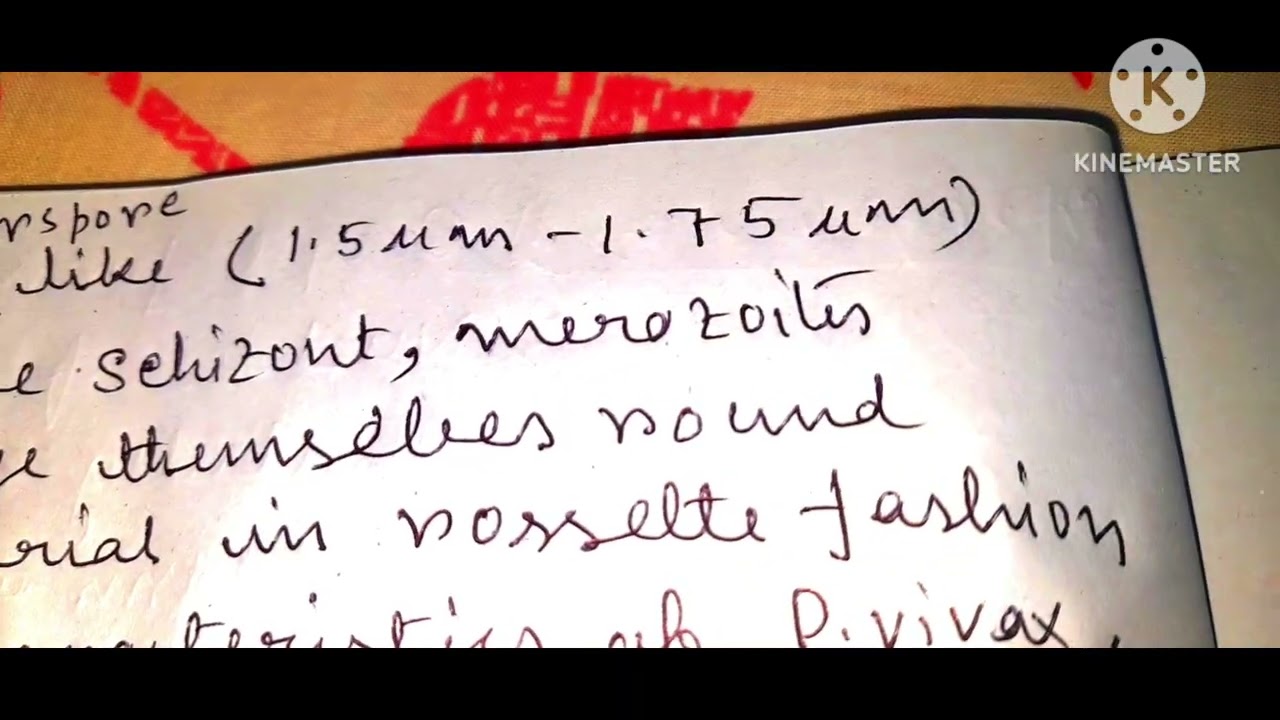 K
KINEMASTER
rspore
like (1.5 µm - 1.75 µm)
e schizont, merozoites
ge themselves round
rial in rossette fashion
racteristics of P. vivax.